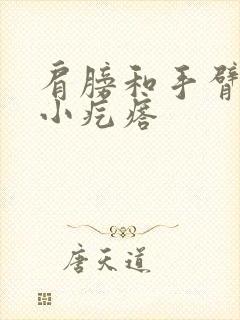 肩膀和手臂
小疙瘩
唐天道